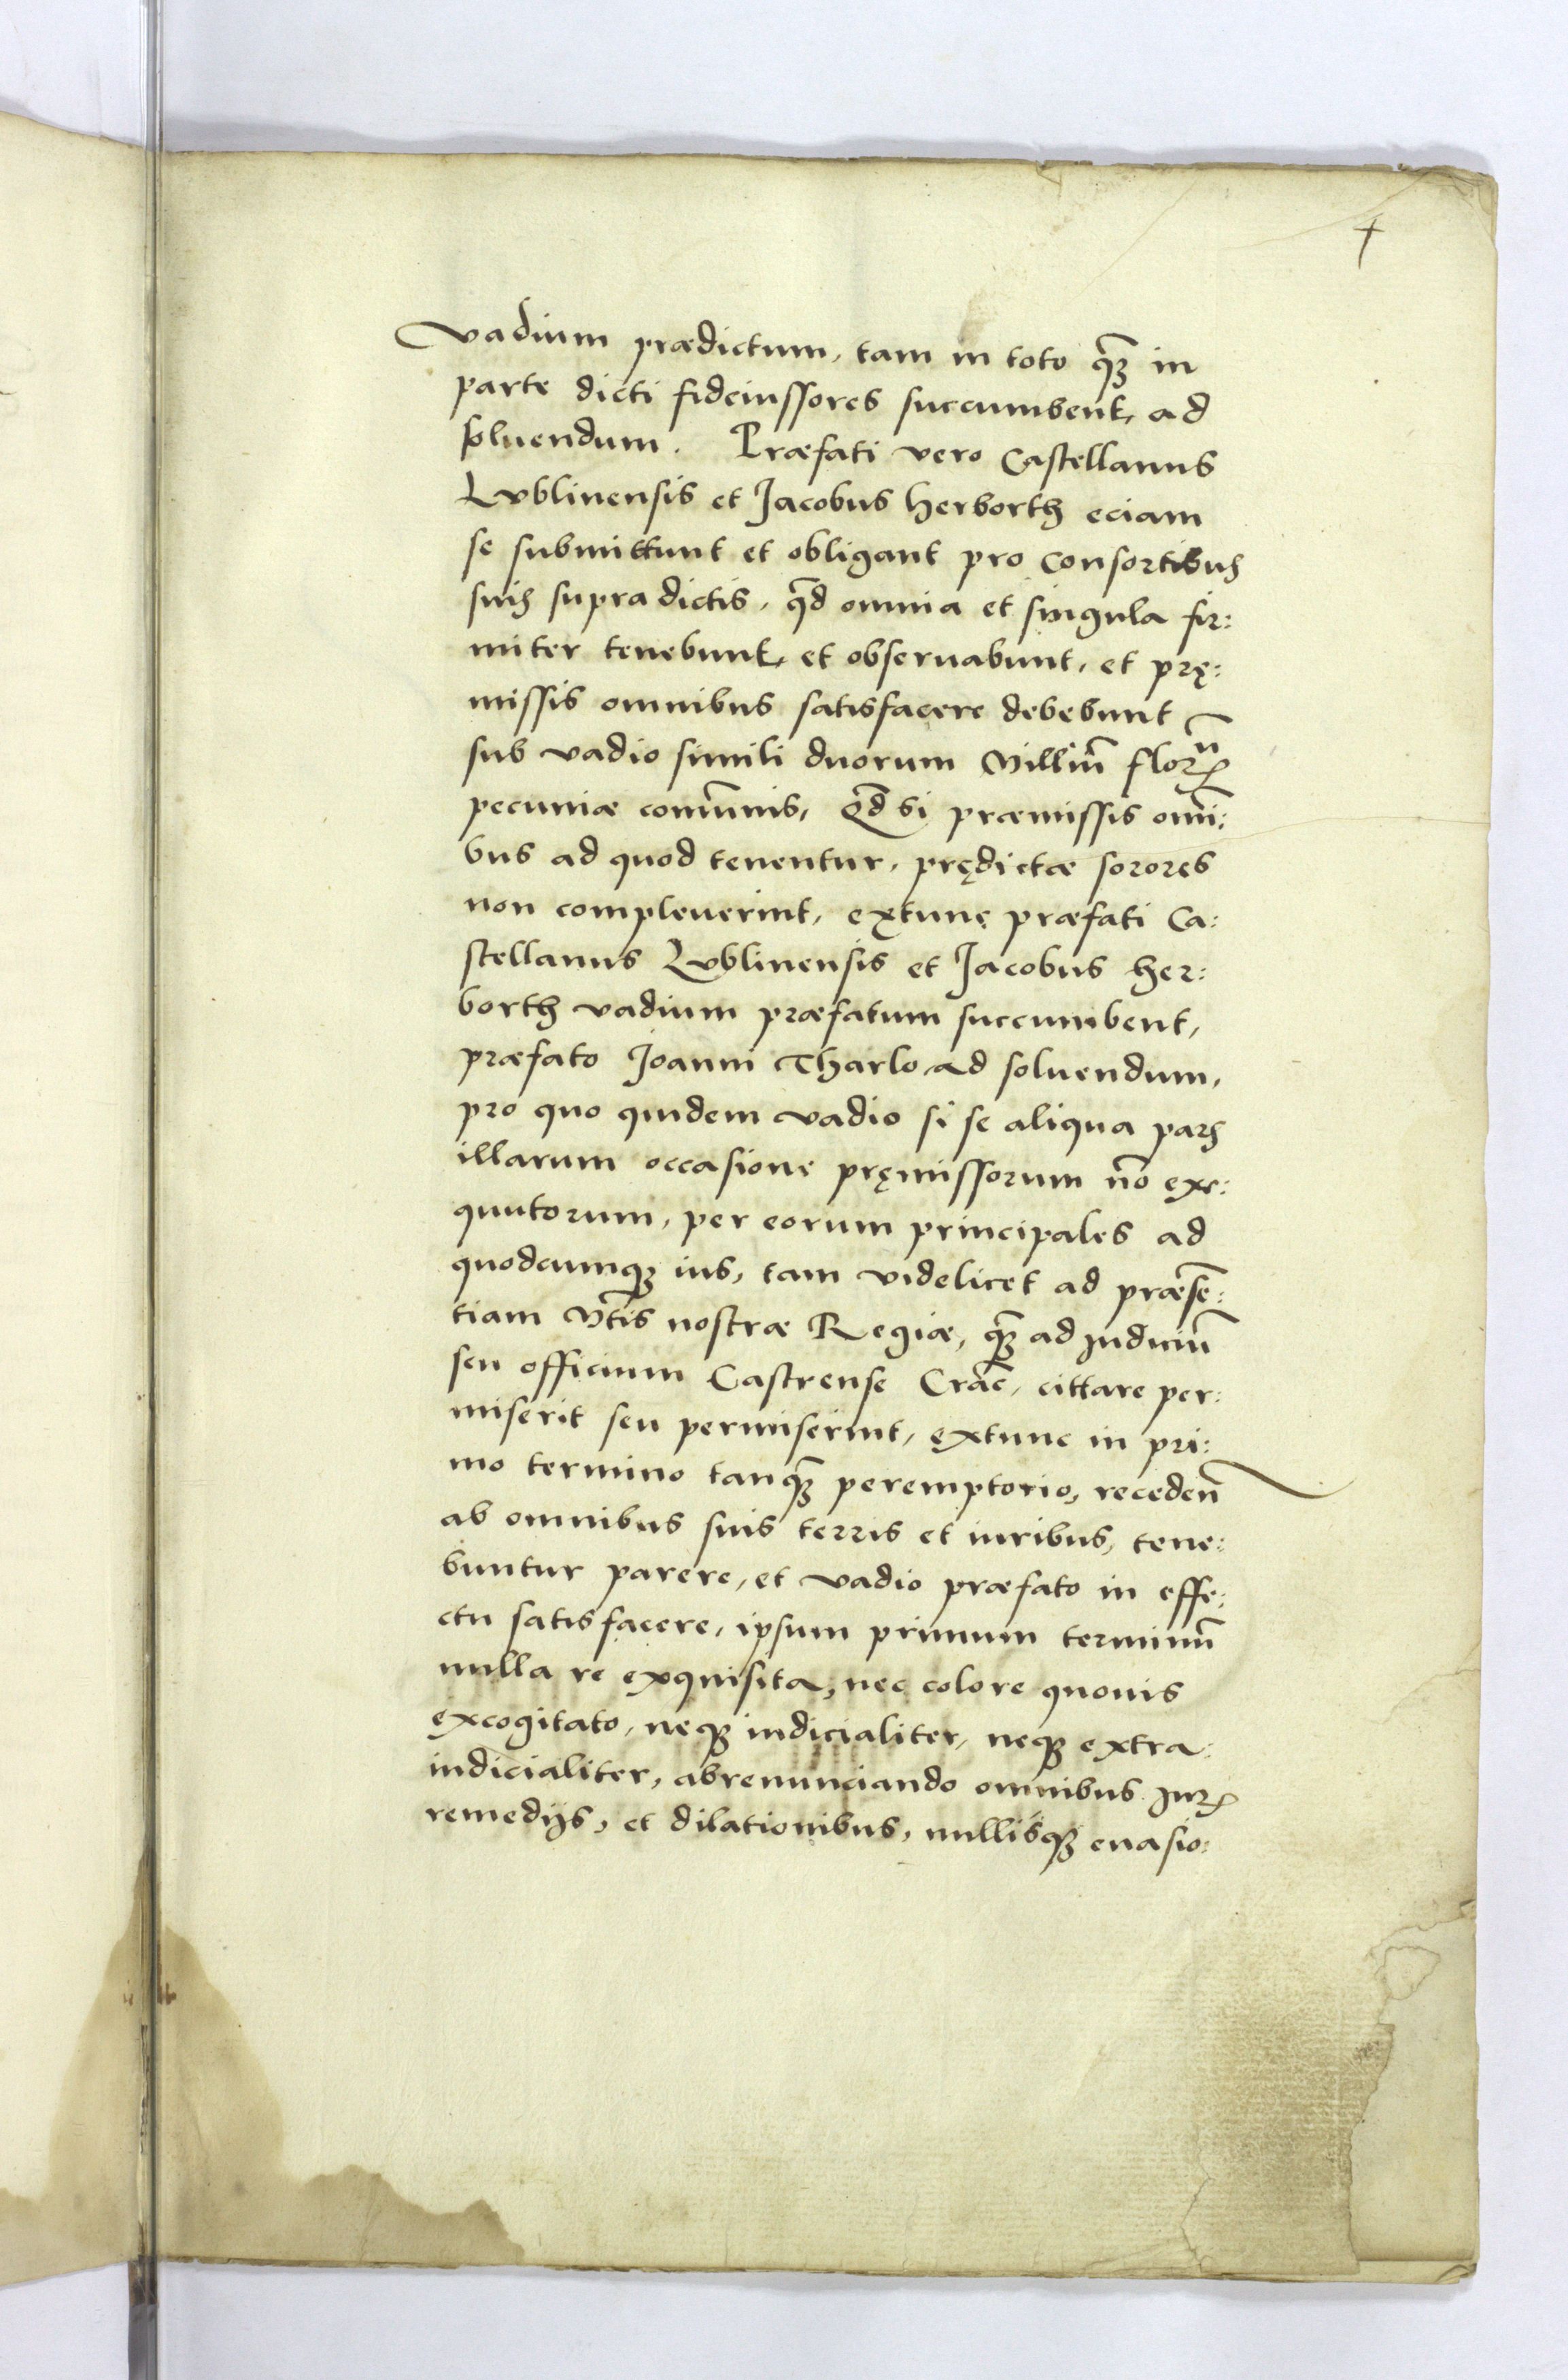 +
vadium prædictum, tam in toto q̃ꝫ in
parte dicti fideiussores succumbent, ad
soluendum. Præfati vero Castellanus
Lublinensis et Jacobus Herborth eciam
se submittunt et obligant pro consortibus
suis supra dictis, q̃d omnia et singula fir:
miter tenebunt, et obseruabunt, et prę:
missis omnibus satisfacere debebunt
sub vadio simili duorum Milliũ florꝝ
pecuniæ com̃unis, Q̃d si præmissis om̃i:
bus ad quod tenentur, prędictæ sorores
non compleuerint, extunc præfati Ca:
stellanus Lublinensis et Jacobus Her:
borth vadium præfatum succumbent,
præfato Joanni Tharlo ad soluendum,
pro quo quidem vadio si se aliqua pars
illarum occasione pręmissorum nõ exe:
quutorum, per eorum principales ad
quodcumqꝫ ius, tam videlicet ad præsẽ:
tiam M̃tis nostræ Regiæ, q̃ꝫ ad Judiciũ
seu officium Castrense Crac̃, cittare per:
miserit seu permiserint, extunc in pri:
mo termino tanq̃ꝫ peremptorio, recedeñ
ab omnibus suis terris et iuribus, tene:
buntur parere, et vadio præfato in effe:
ctu satisfacere, ipsum primum terminũ
nulla re exquisita, nec colore quouis
excogitato, neqꝫ iudicialiter, neqꝫ extra:
iudicialiter, abrenunciando omnibus Jurꝭ
remedijs, et dilationibus, nullisqꝫ euasio: